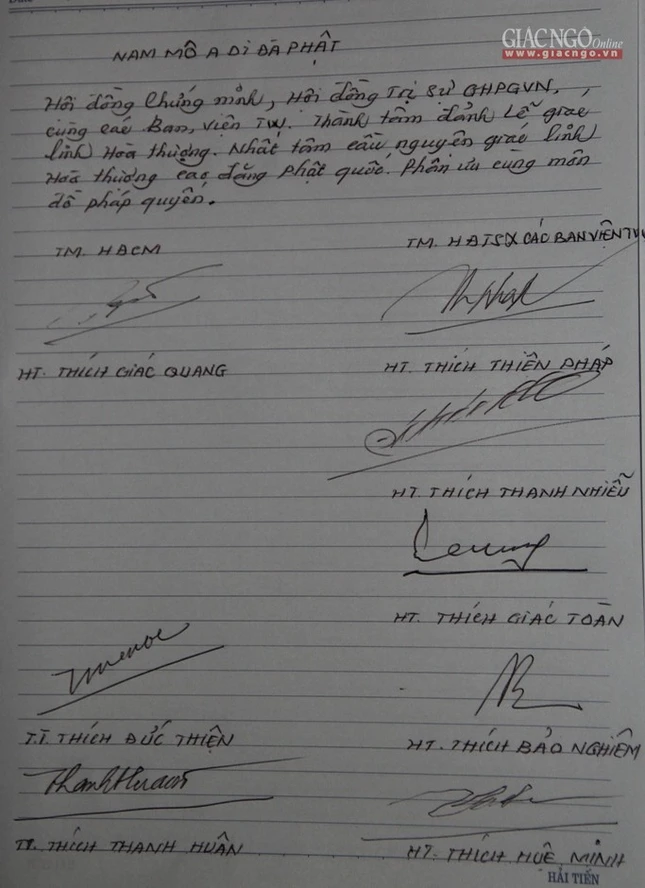 GIÁC NGỘ Online
www.giacngo.vn
NAM MÔ A DI ĐÀ PHẬT
Hội đồng Chứng minh, Hội đồng Trị sự GHPGVN,
cùng các Ban, Viện TW. Thành tâm đảnh Lễ giác
linh Hoà thượng. Nhất tâm cầu nguyện giác linh
Hoà thượng cao đăng Phật quốc. Phân ưu cùng môn
đồ pháp quyến.
TM. HĐCM
TM. HĐTSX CÁC BAN VIỆN TW
HT. THÍCH GIÁC QUANG
HT. THÍCH THIỆN PHÁP
HT. THÍCH THANH NHIỄU
HT. THÍCH GIÁC TOÀN
T.T. THÍCH ĐỨC THIỆN
HT. THÍCH BẢO NGHIÊM
TT. THÍCH THANH HUÂN
HT. THÍCH HUỆ MINH
HẢI TIẾN